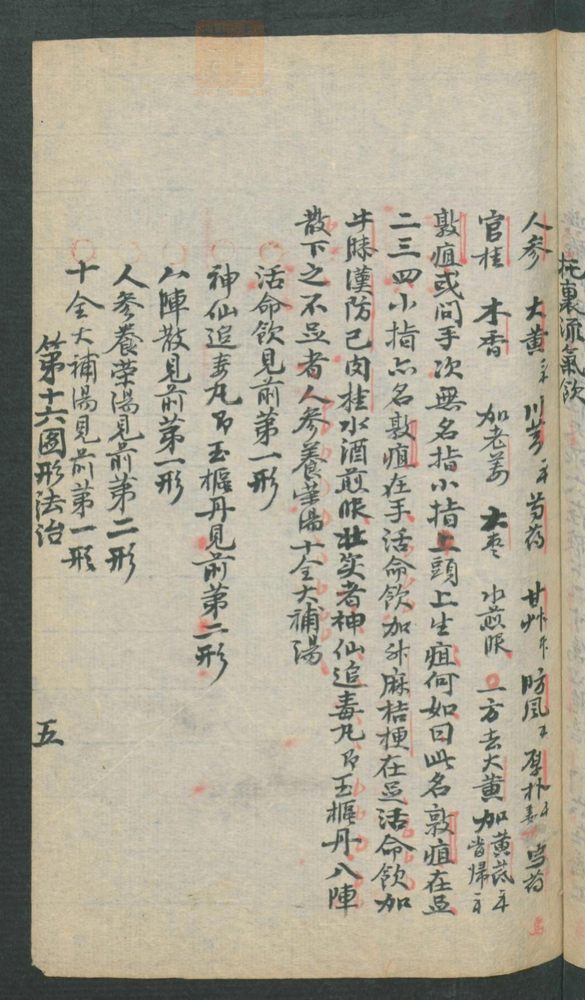 托裏流氣飲
人參 大黃 川芎 芍药 甘艸 防風 厚朴 烏药
官桂 木香 加老姜 大枣 水煎服 一方去大黃加黃芪 當歸
敦疽或问手次無名指小指上頭上生疽何如曰此名敦疽在足
二三四小指亦名敦疽在手活命飲加升麻桔梗在足活命飲加
牛膝漢防己肉桂水酒煎服壯实者神仙追毒丸即玉樞丹八陣
散下之不足者人參養荣湯十全大補湯
活命飲見前第一形
神仙追毒丸即玉樞丹見前第二形
八陣散見前第一形
人參養荣湯見前第二形
十全大補湯見前第一形
第十六圖形法治
五